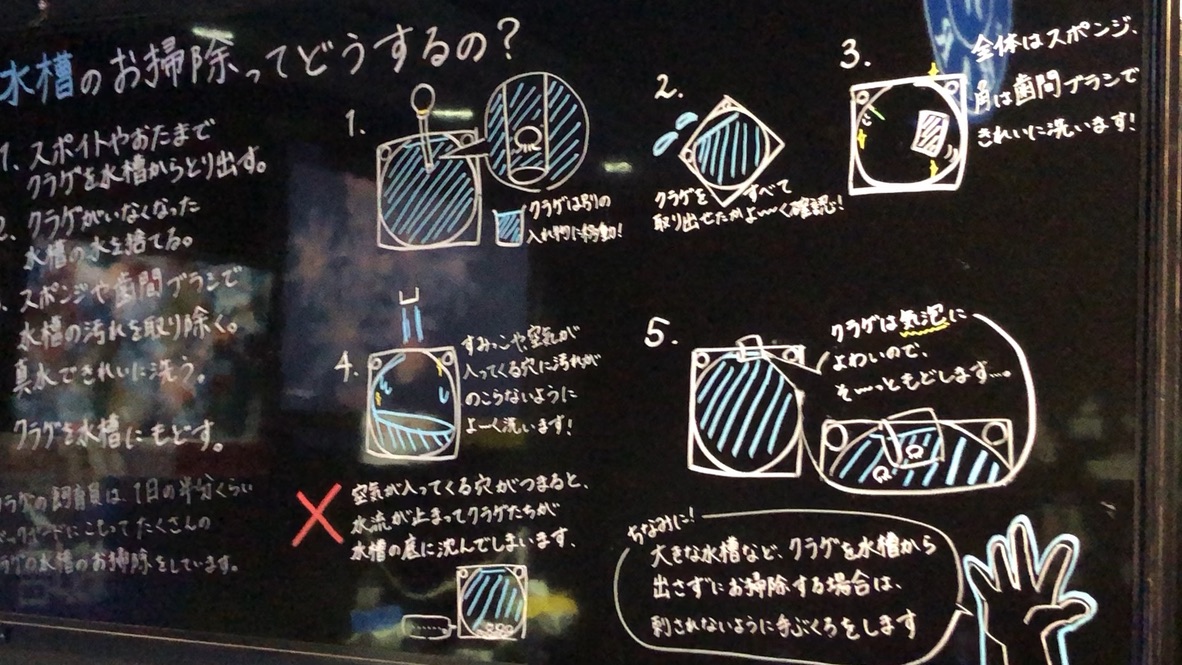 水槽のお掃除ってどうするの？
1. スポイトやおたまで
クラゲを水槽からとり出す。
2. クラゲがいなくなった
水槽の水を捨てる。
スポンジや歯間ブラシで
水槽の汚れを取り除く。
真水できれいに洗う。
クラゲを水槽にもどす。
クラゲの飼育員は1日の半分くらい
バックヤードにこもってたくさんの
クラゲの水槽のお掃除をしています。
1.
クラゲは別の
入れ物に移動！
2.
クラゲを すべて
取り出せたかよ〜く確認！
3.
全体はスポンジ、
角は歯間ブラシで
きれいに洗います！
4.
すみっこや、空気が
入ってくる穴に汚れが
のこらないように
よーく洗います！
空気が入ってくる穴がつまると、
水流が止まってクラゲたちが
水槽の底に沈んでしまいます、
5.
クラゲは気泡に
よわいので、
そ〜っともどします…。
ちなみに！
大きな水槽など、クラゲを水槽から
出さずにお掃除する場合は、
刺されないように手ぶくろをします